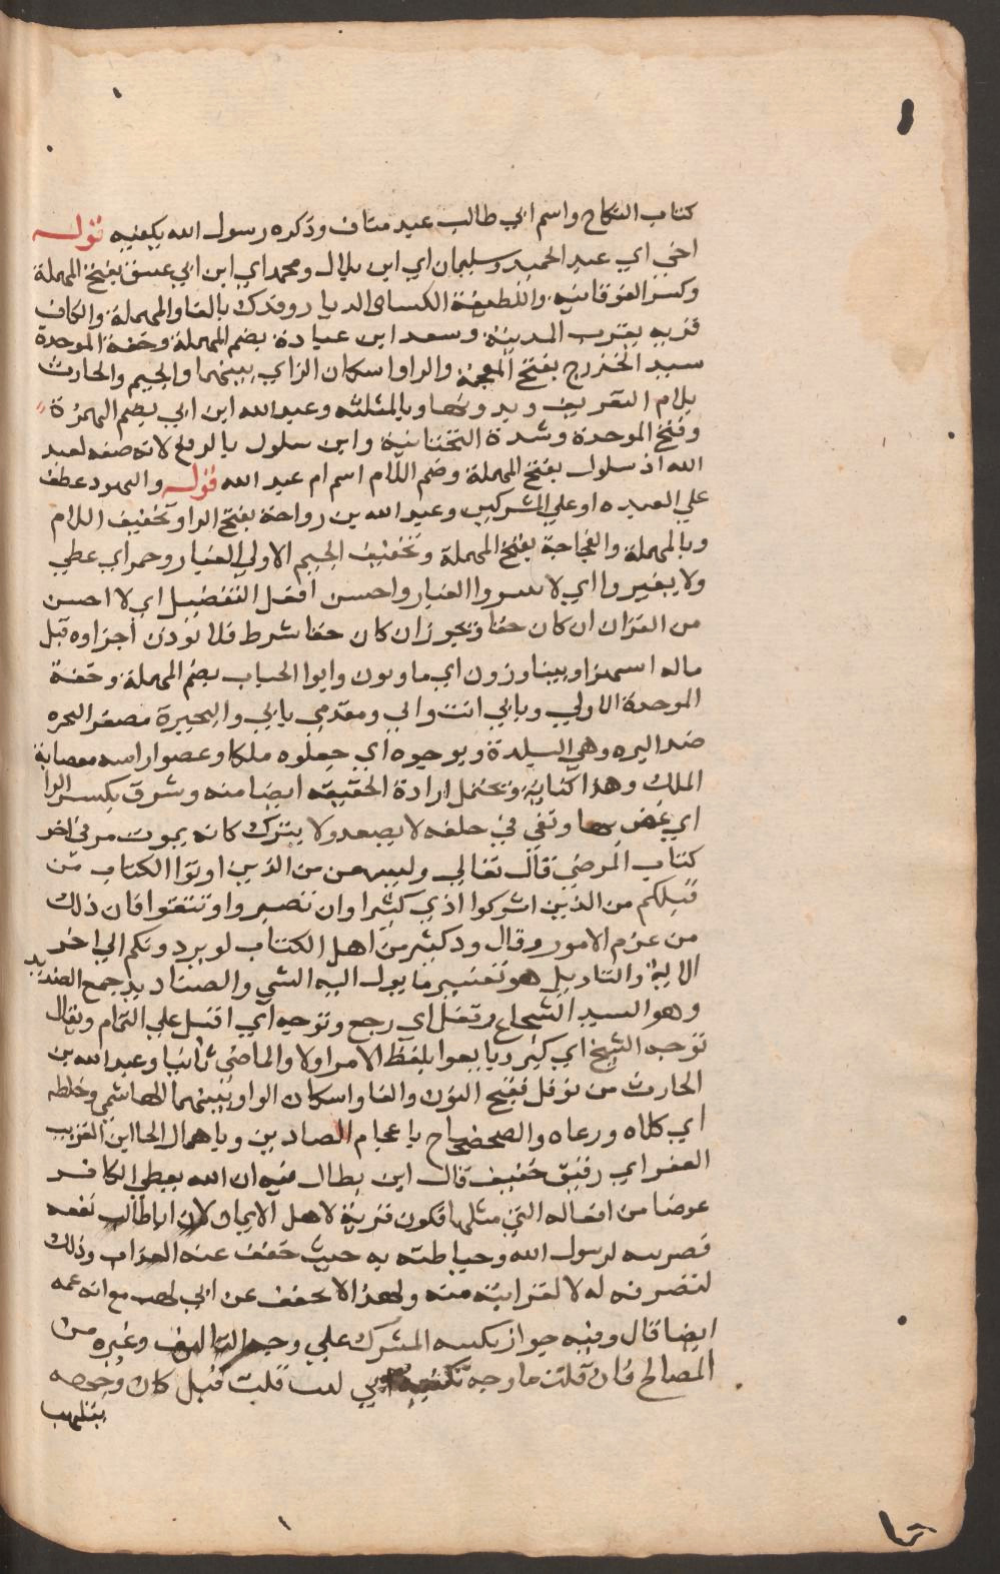 كتاب النكاح واسم ابي طالب عبد مناف وذكره رسول الله بكنيه قوله
اخي اي عبد الحميد وسليمان اي ابن بلال ومحمد اي ابن ابي عتيق بفتح المهملة
وكسر الفوقانيه والقطيفة الكساي الدثار وفدك بالفا والمهملة والكاف
قريه بقرب المدينة وسعد ابن عبادة بضم المهملة وخفة الموحدة
سيد الخزرج بفتح المعجمة والرا واسكان الزاي بينهما والجيم والحارث
بلام التعريف وبدونها وبالمثلثه وعبد الله ابن ابي بضم الهمزة
وفتح الموحدة وشدة التحتانية وابن سلول بالرفع لانه صفه لعبد
الله اذ سلول بفتح المهملة وضم اللام اسم ام عبد الله قوله واليهود عطف
علي العبده او علي المشركين وعبد الله بن رواحة بفتح الرا وتخفيف اللام
وبالمهملة والعجاجة بفتح المهملة وتخفيف الجيم الاولي الغبار وخمر اي غطي
ولا يغبروا اي لا تثيروا الغبار واحسن افعل التفضيل اي لا احسن
من القران ان كان حقا ويجوز ان كان حقا شرط فلا تؤذن اجزاوه قبل
ماله اسمهزا ويتثاورون اي يتاوبون وابوا الحباب بضم المهملة وخفة
الموحدة الاولي وبابي انت واي ومفدي بابي والبحيرة مصغر البحره
ضد البره وهي البلدة ويوجوه اي جعلوه ملكا وعصوا راسه بعصابة
الملك وهذا كناية ويحتمل ارادة الحقيقه ايضا منه وشرق بكسر الرا
اي غص بها وبقي في حلقه لا يصعد ولا ينزل كانه يموت مر في اخر
كتاب المرضي قال تعالي وليسمعن من الذين اوتوا الكتاب من
قبلكم من الذين اشركوا اذي كثيرا وان تصبروا وتتقوا فان ذلك
من عزم الامور وقال ود كثير من اهل الكتاب لو يردونكم الي اخر
الاية والتاويل هو تفسير ما يول اليه الشي والصناديد جمع الصنديد
وهو السيد الشجاع وقفل اي رجع وتوجه اي اقبل علي التمام ويقال
توجه الشيخ اي كبر وبايعوا بلفظ الامر اولا والماضي ثانيا وعبد الله بن
الحارث من نوفل بفتح النون والفا واسكان الواو بينهما الهاشمي وخلطه
اي كلاه ورعاه والضحضاح باعجام الصادين وباهمال الحااين القريب
القعر اي رقيق خفيف قال ابن بطال فيه ان الله يعطي الكافر
عوضا من افعاله التي مثلها تكون قربة لاهل الايمان لان ابا طالب نفعه
نصرته لرسول الله وحياطته به حيث خفف عنه العذاب وذلك
لنصرته له لا لقرابته منه ولهذا لا يخفف عن ابي لهب مع انه عمه
ايضا قال وفيه جواز تكنيه المشرك علي وجه التالف وغيره من
المصالح فان قلت ما وجه تكنية ابي لهب قلت قيل كان وجهه
يتلهب